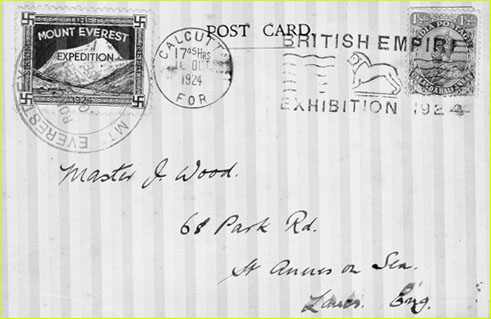 THE
MOUNT EVEREST
EXPEDITION
1924
MT EVEREST
POST CARD.
CALCUTTA
17 45 HRS
OCT
1924
FOR
BRITISH EMPIRE
EXHIBITION 1924
INDIA POSTAGE
Master J. Wood.
68 Park Rd.
St Annes on Sea.
Lancs. Eng.